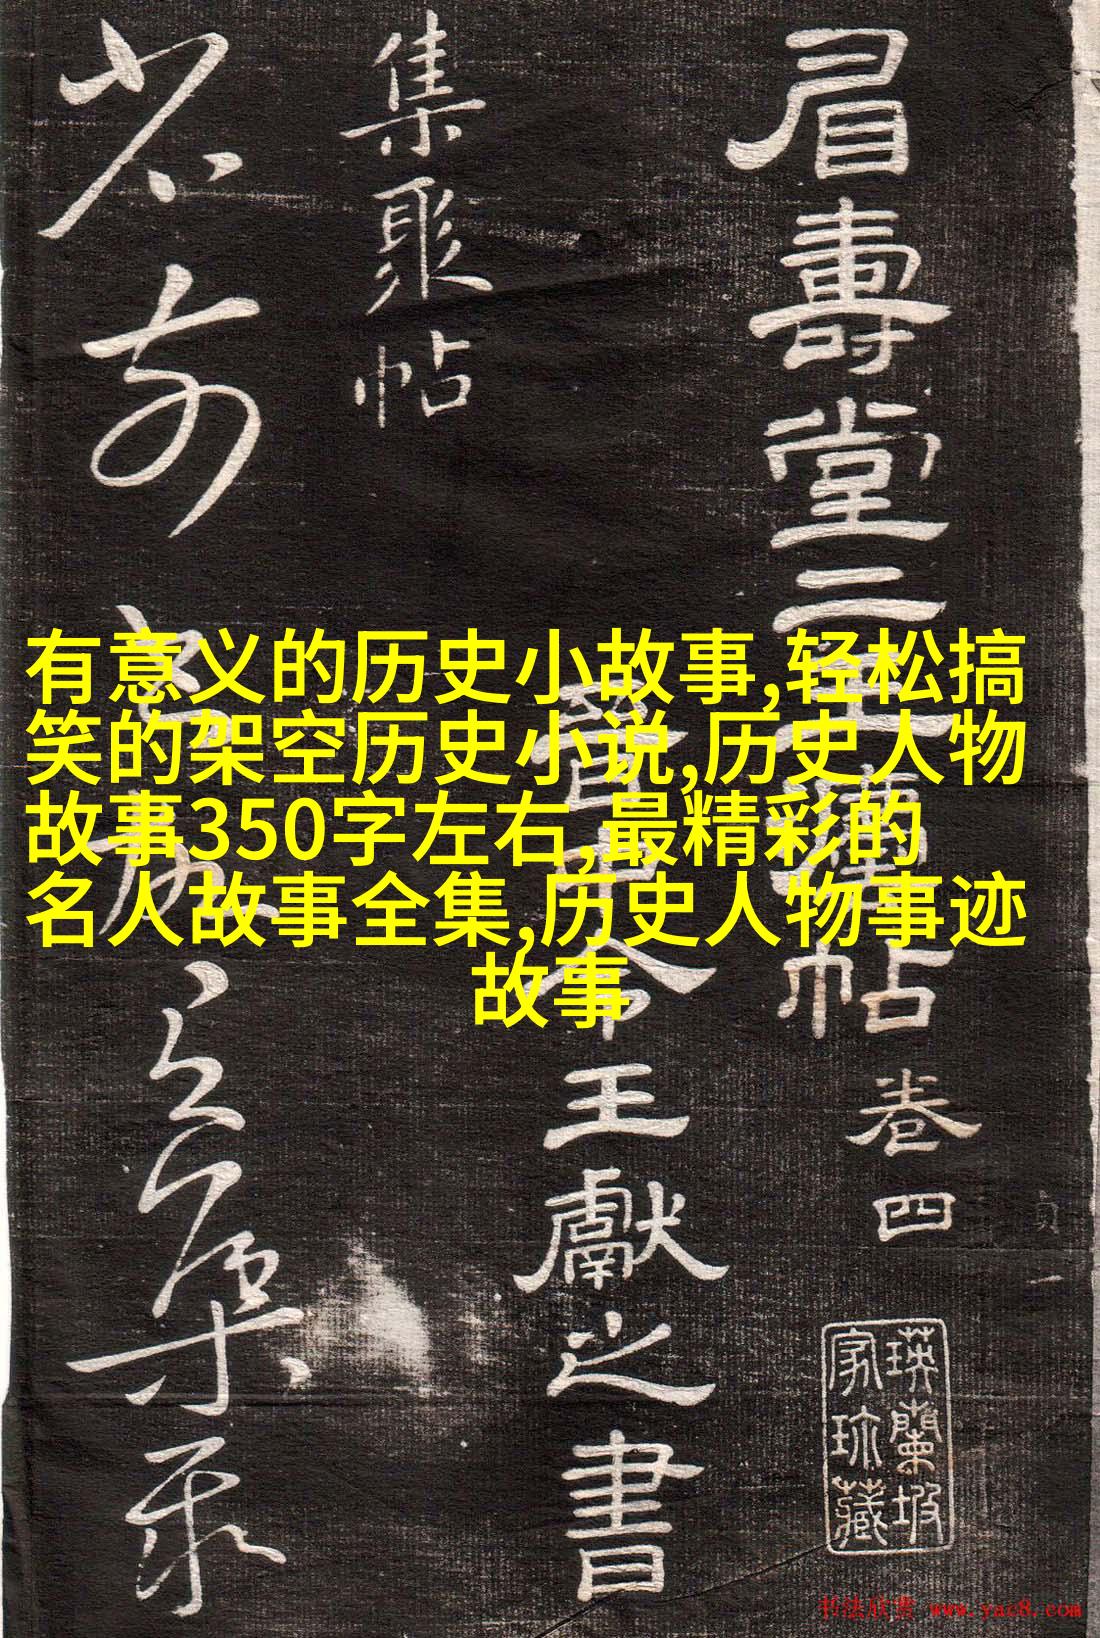 眉壽堂二王藏帖卷四
晉中令王獻之書
集聚帖
英蘭坡
家珎藏
有意义的历史小故事,轻松搞
笑的架空历史小说,历史人物
故事350字左右,最精彩的
名人故事全集,历史人物事迹
故事
书法欣赏 www.yac8.com